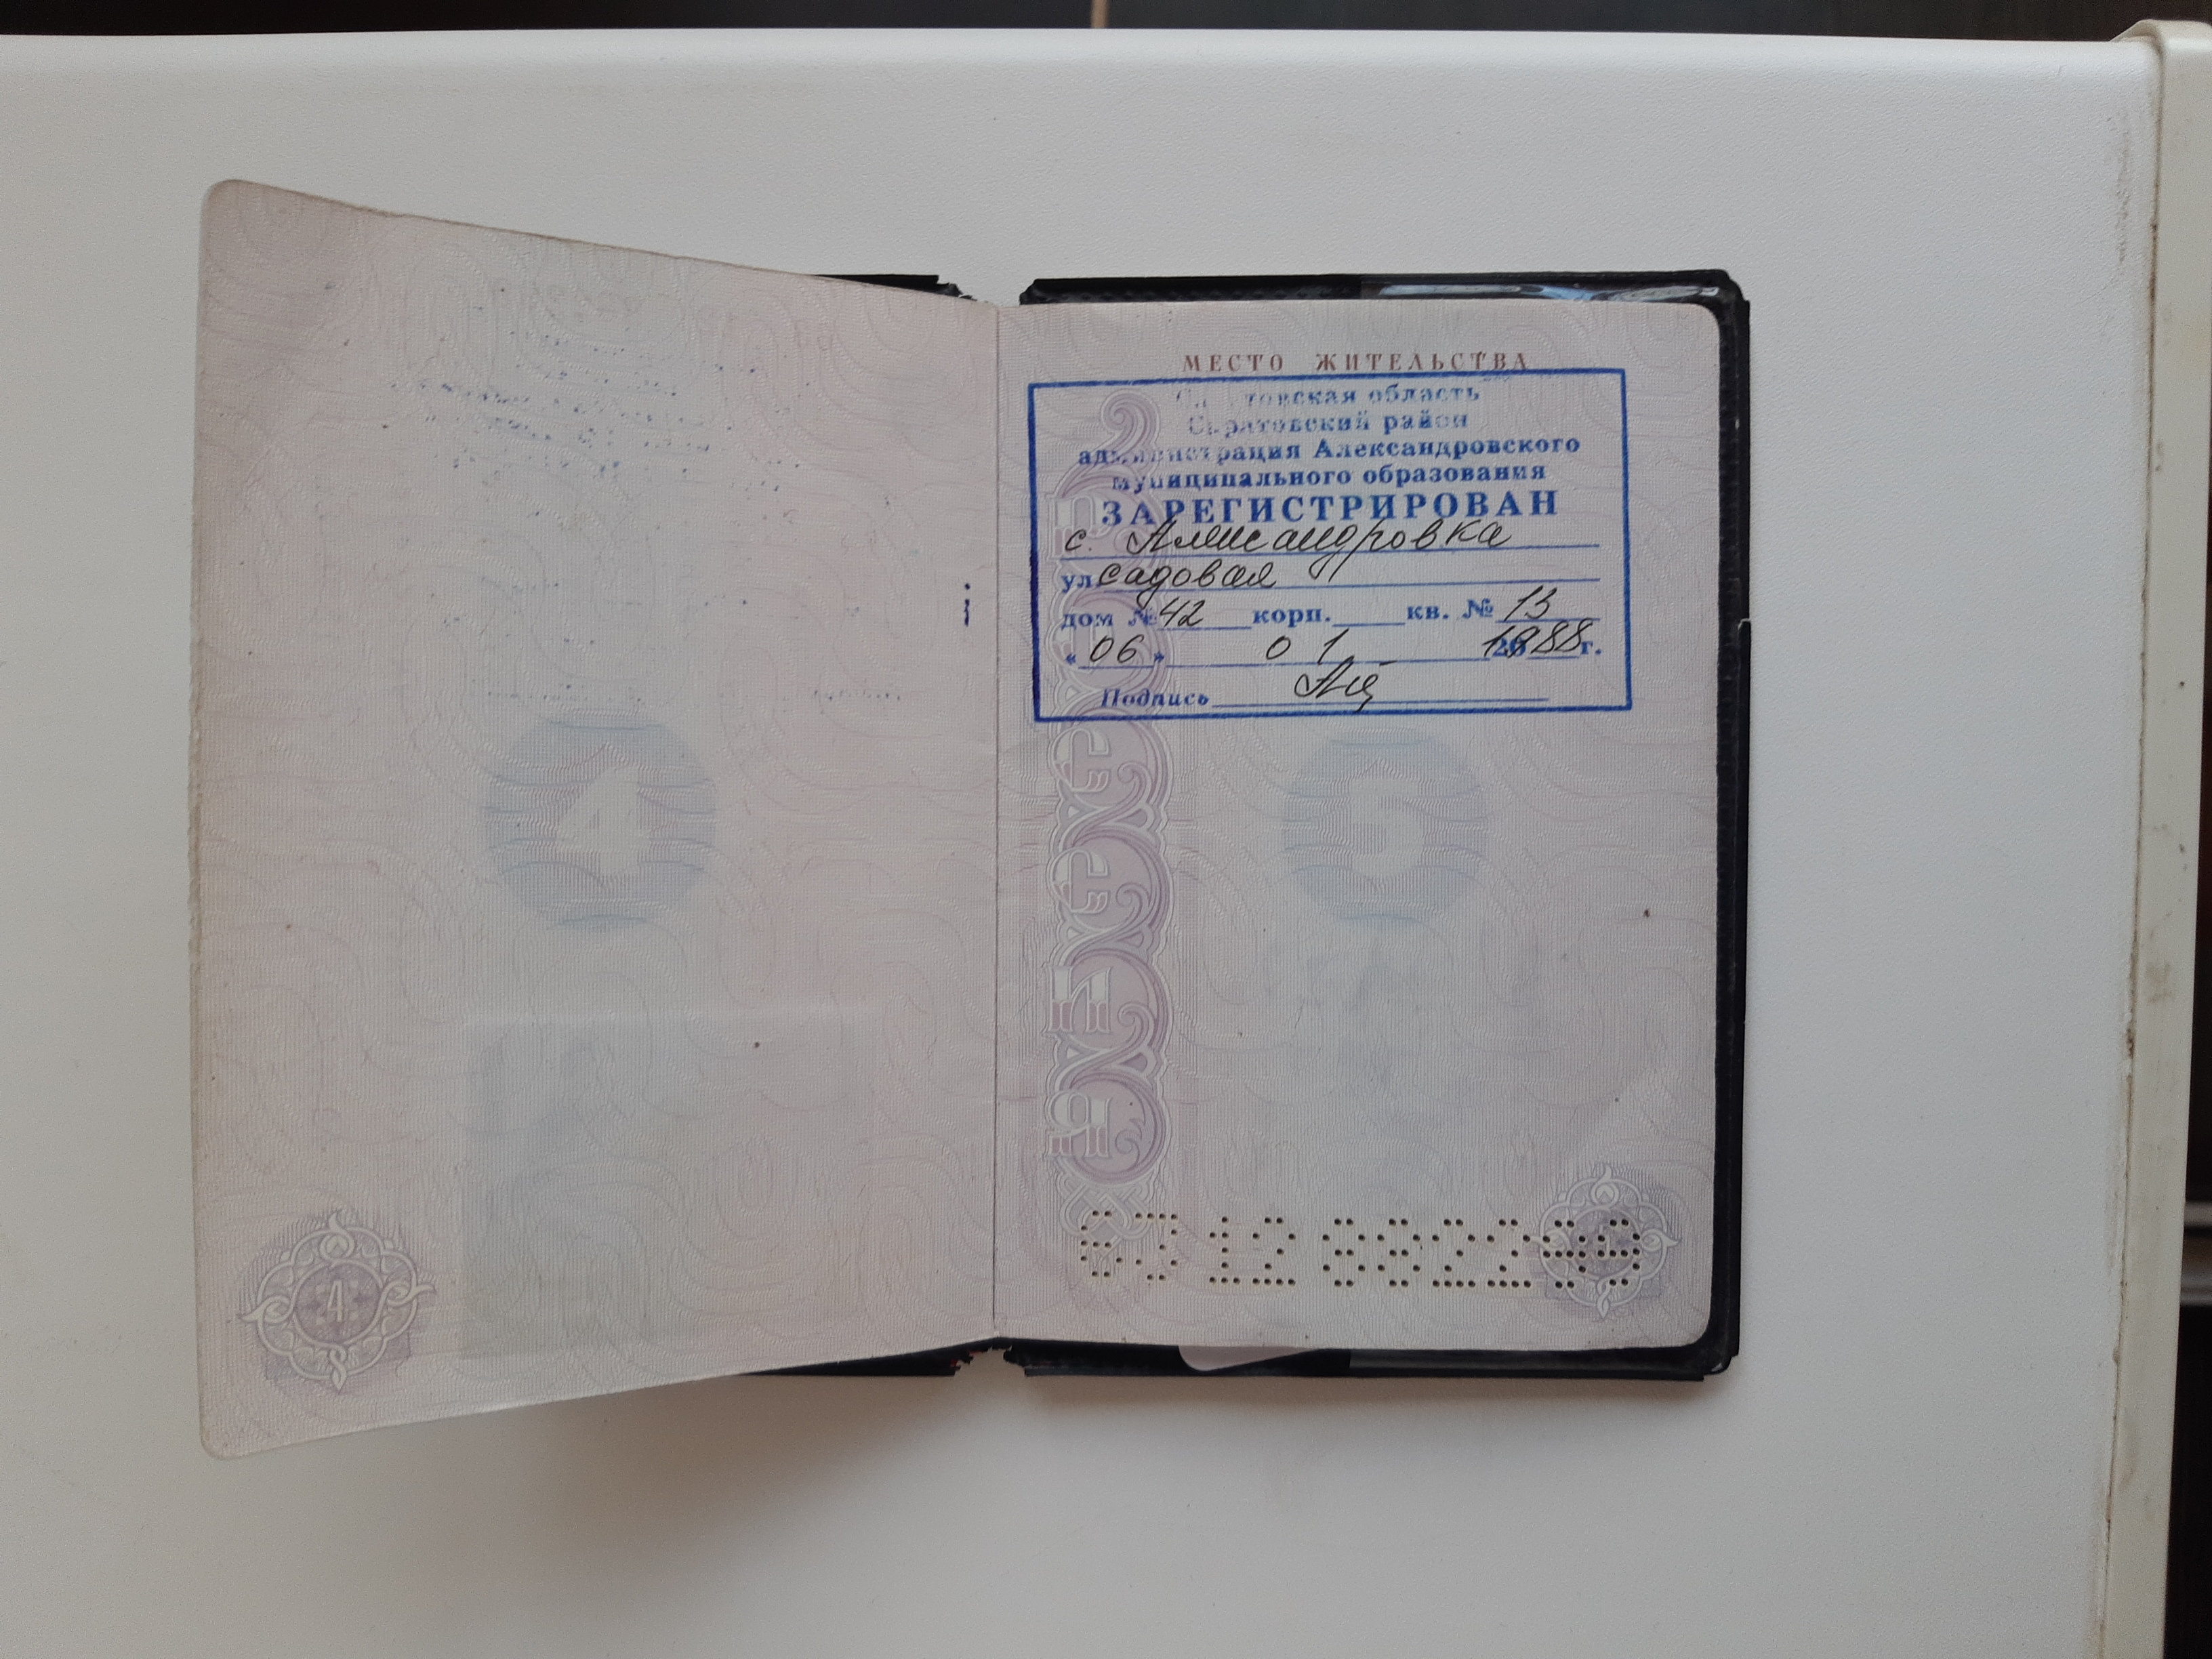 МЕСТО ЖИТЕЛЬСТВА
область
Саратовский район
администрация Александровского
муниципального образования
ЗАРЕГИСТРИРОВАН
с.
ул. Садовая
дом № 42 корп. кв. № 13
« 06 » 01 1988 г.
Подпись